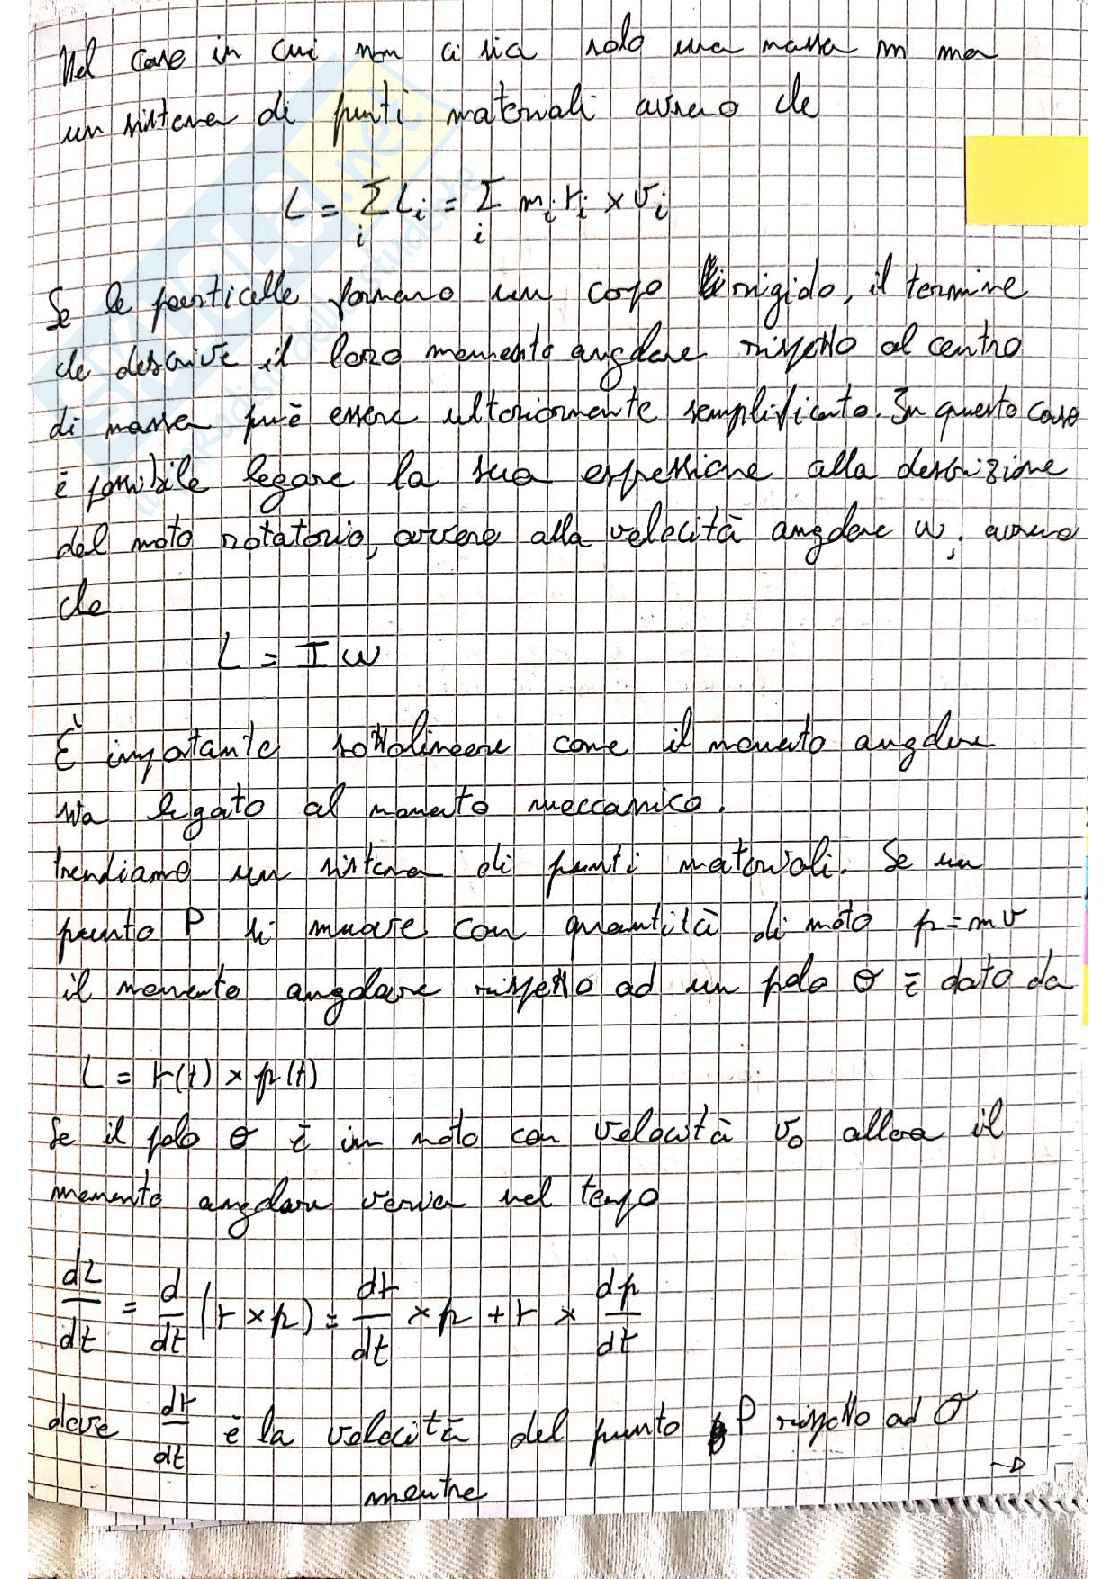 Nel caso in cui non ci sia solo una massa m ma
un sistema di punti materiali avremo che
L = Σ_i L_i = Σ_i m_i r_i × v_i
Se le particelle formano un corpo rigido, il termine
che descrive il loro momento angolare rispetto al centro
di massa può essere ulteriormente semplificato. In questo caso
è possibile legare la sua espressione alla descrizione
del moto rotatorio, ovvero alla velocità angolare w, avremo
che
L = I w
È importante sottolineare come il momento angolare
sia legato al momento meccanico.
Prendiamo un sistema di punti materiali. Se un
punto P si muove con quantità di moto p = mv
il momento angolare rispetto ad un polo O è dato da
L = r(t) × p(t)
Se il polo O è in moto con velocità v_0 allora il
momento angolare varia nel tempo
dL/dt = d/dt (r × p) = dr/dt × p + r × dp/dt
dove dr/dt è la velocità del punto P rispetto ad O
mentre